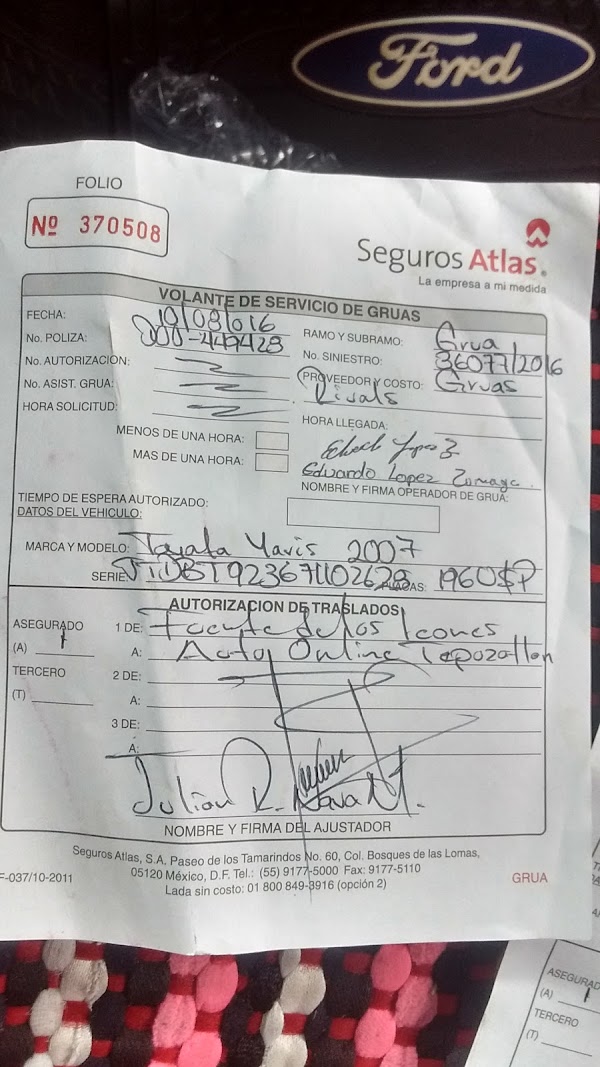 Ford
FOLIO
Nº 370508
Seguros Atlas.
La empresa a mi medida
VOLANTE DE SERVICIO DE GRUAS
FECHA: 19/08/016
RAMO Y SUBRAMO: Grua
No. POLIZA: 000-449428
No. SINIESTRO: 36077/2016
No. AUTORIZACION:
PROVEEDOR Y COSTO: Gruas
No. ASIST. GRUA:
Rivals
HORA SOLICITUD:
HORA LLEGADA:
MENOS DE UNA HORA:
MAS DE UNA HORA:
Eduardo Lopez
NOMBRE Y FIRMA OPERADOR DE GRUA:
TIEMPO DE ESPERA AUTORIZADO:
DATOS DEL VEHICULO:
MARCA Y MODELO: Toyata Yaris 2007
SERIE: JTDBT923671102628 PLACAS:
AUTORIZACION DE TRASLADOS
ASEGURADO
1 DE: Fuente de los Leones
(A)
A: Auto Online Tepozatlan
TERCERO
2 DE:
(T)
A:
3 DE:
A:
Julian R. Nava M.
NOMBRE Y FIRMA DEL AJUSTADOR
Seguros Atlas, S.A. Paseo de los Tamarindos No. 60, Col. Bosques de las Lomas,
05120 México, D.F. Tel.: (55) 9177-5000 Fax: 9177-5110
Lada sin costo: 01 800 849-3916 (opción 2)
F-037/10-2011
GRUA
ASEGURADO
(A)
TERCERO
(T)